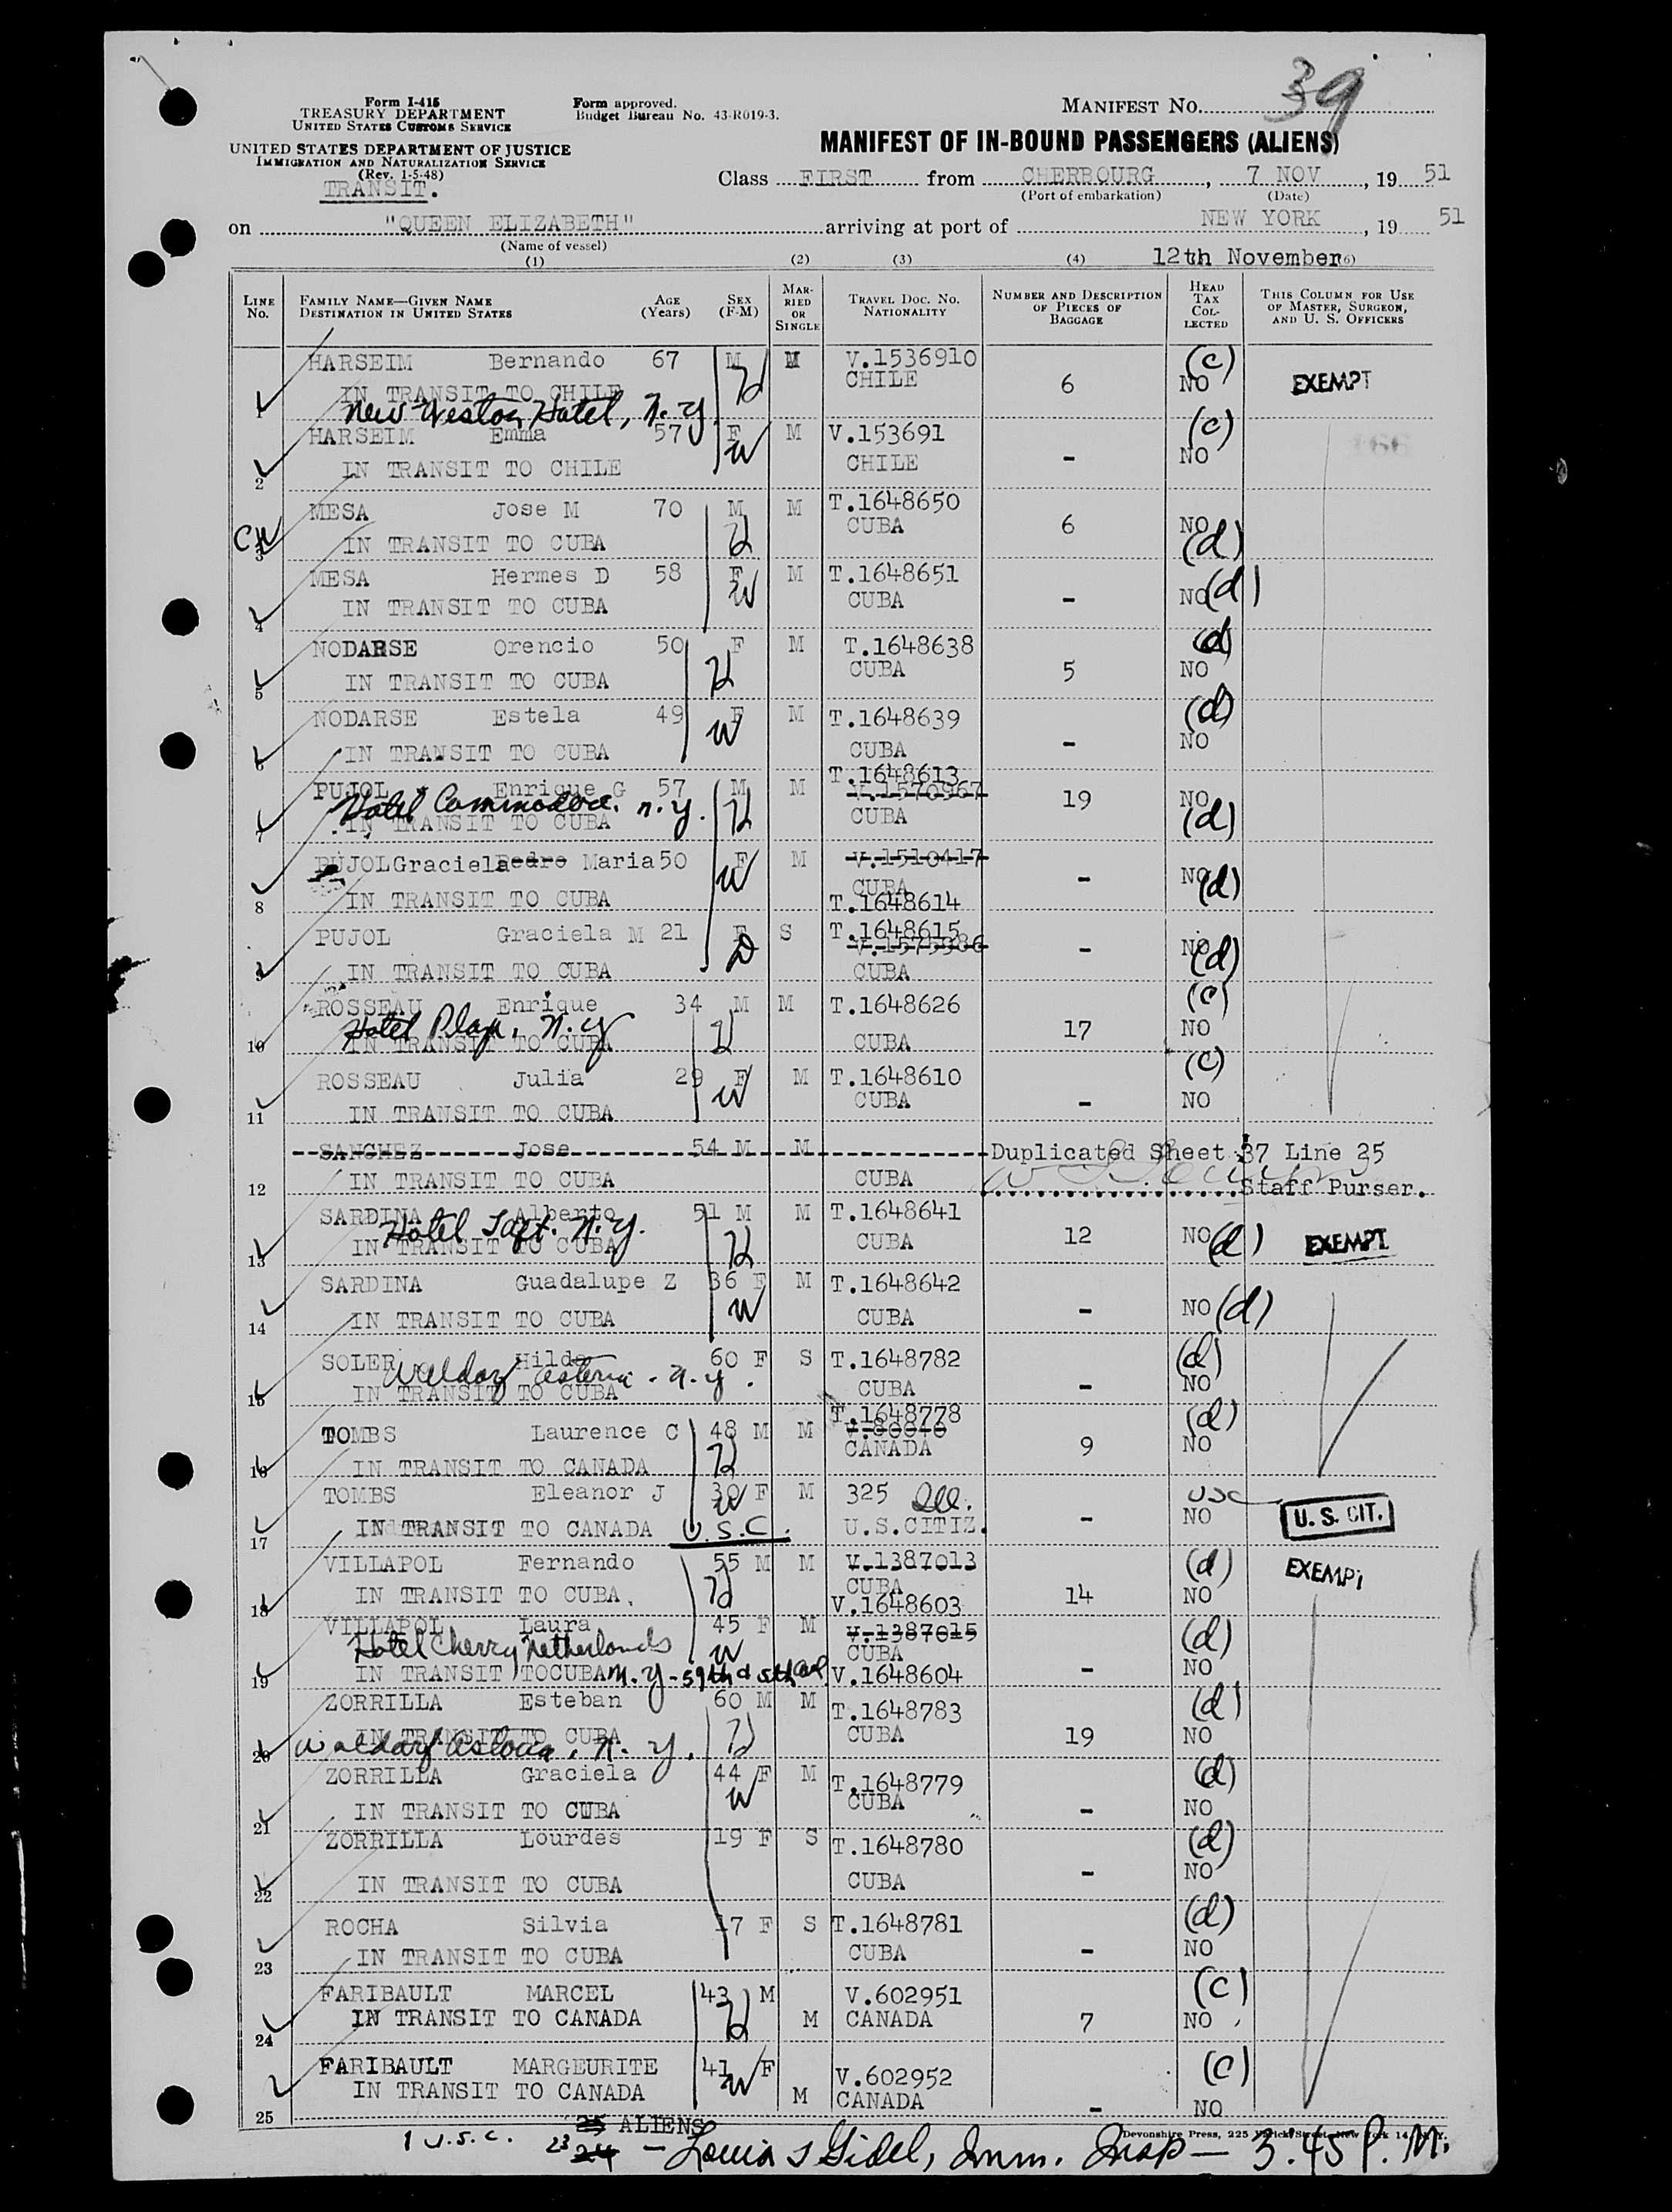 39
Form I-415 Form approved. MANIFEST No.
TREASURY DEPARTMENT Budget Bureau No. 43-R019-3.
UNITED STATES CUSTOMS SERVICE
MANIFEST OF IN-BOUND PASSENGERS (ALIENS)
UNITED STATES DEPARTMENT OF JUSTICE
IMMIGRATION AND NATURALIZATION SERVICE
(Rev. 1-5-48)
TRANSIT.
Class FIRST from CHERBOURG, 7 NOV, 19 51
(Port of embarkation) (Date)
on "QUEEN ELIZABETH" arriving at port of NEW YORK, 19 51
(Name of vessel)
(1) (2) (3) (4) 12th November (6)
LINE No. FAMILY NAME—GIVEN NAME DESTINATION IN UNITED STATES AGE (Years) SEX (F-M) MARRIED OR SINGLE TRAVEL DOC. No. NATIONALITY NUMBER AND DESCRIPTION OF PIECES OF BAGGAGE HEAD TAX COLLECTED THIS COLUMN FOR USE OF MASTER, SURGEON, AND U. S. OFFICERS
HARSEIM Bernando 67 M M V.1536910 (c)
IN TRANSIT TO CHILE H CHILE 6 NO EXEMPT
1 New Weston Hotel, N.Y.
HARSEIM Emma 57 F M V.153691 (c)
2 IN TRANSIT TO CHILE W CHILE - NO
MESA Jose M 70 M M T.1648650
3 IN TRANSIT TO CUBA H CUBA 6 NO (d)
MESA Hermes D 58 F M T.1648651
4 IN TRANSIT TO CUBA W CUBA - NO (d)
NODARSE Orencio 50 F M T.1648638 (d)
5 IN TRANSIT TO CUBA H CUBA 5 NO
NODARSE Estela 49 F M T.1648639 (d)
6 IN TRANSIT TO CUBA W CUBA - NO
T.1648613
PUJOL Enrique G 57 M M V.1570967 19 NO
Hotel Commodore. N.Y.
7 IN TRANSIT TO CUBA H CUBA (d)
PUJOL Graciela Pedro Maria 50 F M V.1510417
8 IN TRANSIT TO CUBA W CUBA - NO (d)
T.1648614
PUJOL Graciela M 21 F S T.1648615
V.1575986
9 IN TRANSIT TO CUBA D CUBA - NO (d)
ROSSEAU Enrique 34 M M T.1648626 (c)
Hotel Plaza, N.Y.
10 IN TRANSIT TO CUBA H CUBA 17 NO
ROSSEAU Julia 29 F M T.1648610 (c)
11 IN TRANSIT TO CUBA W CUBA - NO
SANCHEZ Jose 54 M M Duplicated Sheet 37 Line 25
12 IN TRANSIT TO CUBA CUBA Staff Purser.
SARDINA Alberto 51 M M T.1648641
Hotel Taft. N.Y.
13 IN TRANSIT TO CUBA H CUBA 12 NO (d) EXEMPT
SARDINA Guadalupe Z 36 F M T.1648642
14 IN TRANSIT TO CUBA W CUBA - NO (d)
SOLER Hilda 60 F S T.1648782 (d)
Waldorf Astoria. N.Y.
15 IN TRANSIT TO CUBA CUBA - NO
T.1648778 (d)
TOMBS Laurence C 48 M M V.80040
16 IN TRANSIT TO CANADA H CANADA 9 NO
TOMBS Eleanor J 30 F M 325 USC
17 IN TRANSIT TO CANADA W U.S.C. U.S.CITIZ. - NO U. S. CIT.
VILLAPOL Fernando 55 M M V.1387013 (d) EXEMPT
18 IN TRANSIT TO CUBA H CUBA 14 NO
V.1648603
VILLAPOL Laura 45 F M V.1387015 (d)
Hotel Cherry Netherlands W CUBA
19 IN TRANSIT TOCUBA N.Y - 59th & 5th Ave V.1648604 - NO
ZORRILLA Esteban 60 M M T.1648783 (d)
IN TRANSIT TO CUBA H CUBA 19 NO
20 Waldorf Astoria, N.Y.
ZORRILLA Graciela 44 F M T.1648779 (d)
21 IN TRANSIT TO CUBA W CUBA - NO
ZORRILLA Lourdes 19 F S T.1648780 (d)
22 IN TRANSIT TO CUBA CUBA - NO
ROCHA Silvia 17 F S T.1648781 (d)
23 IN TRANSIT TO CUBA CUBA - NO
FARIBAULT MARCEL 43 M V.602951 (c)
24 IN TRANSIT TO CANADA H M CANADA 7 NO
FARIBAULT MARGEURITE 41 F V.602952 (c)
25 IN TRANSIT TO CANADA W M CANADA - NO
25 ALIENS
Devonshire Press, 225 Varick Street, New York 14, N.Y.
1 U.S.C. 23 24 - Louis S Gidel, Imm. Insp - 3:45 P.M.